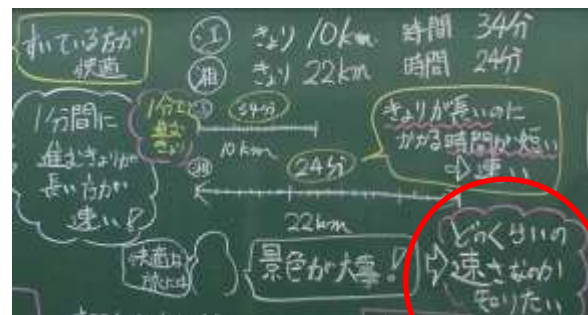 すいている方が
快適
江 きょり 10km 時間 34分
湘 きょり 22km 時間 24分
1分間に
進むきょりが
長い方が
速い!
1分で
進む
きょり
34分
10km
湘
24分
22km
きょりが長いのに
かかる時間が短い
⇨速い
快適な
旅には
景色が大事!
⇨
どのくらいの
速さなのか
知りたい